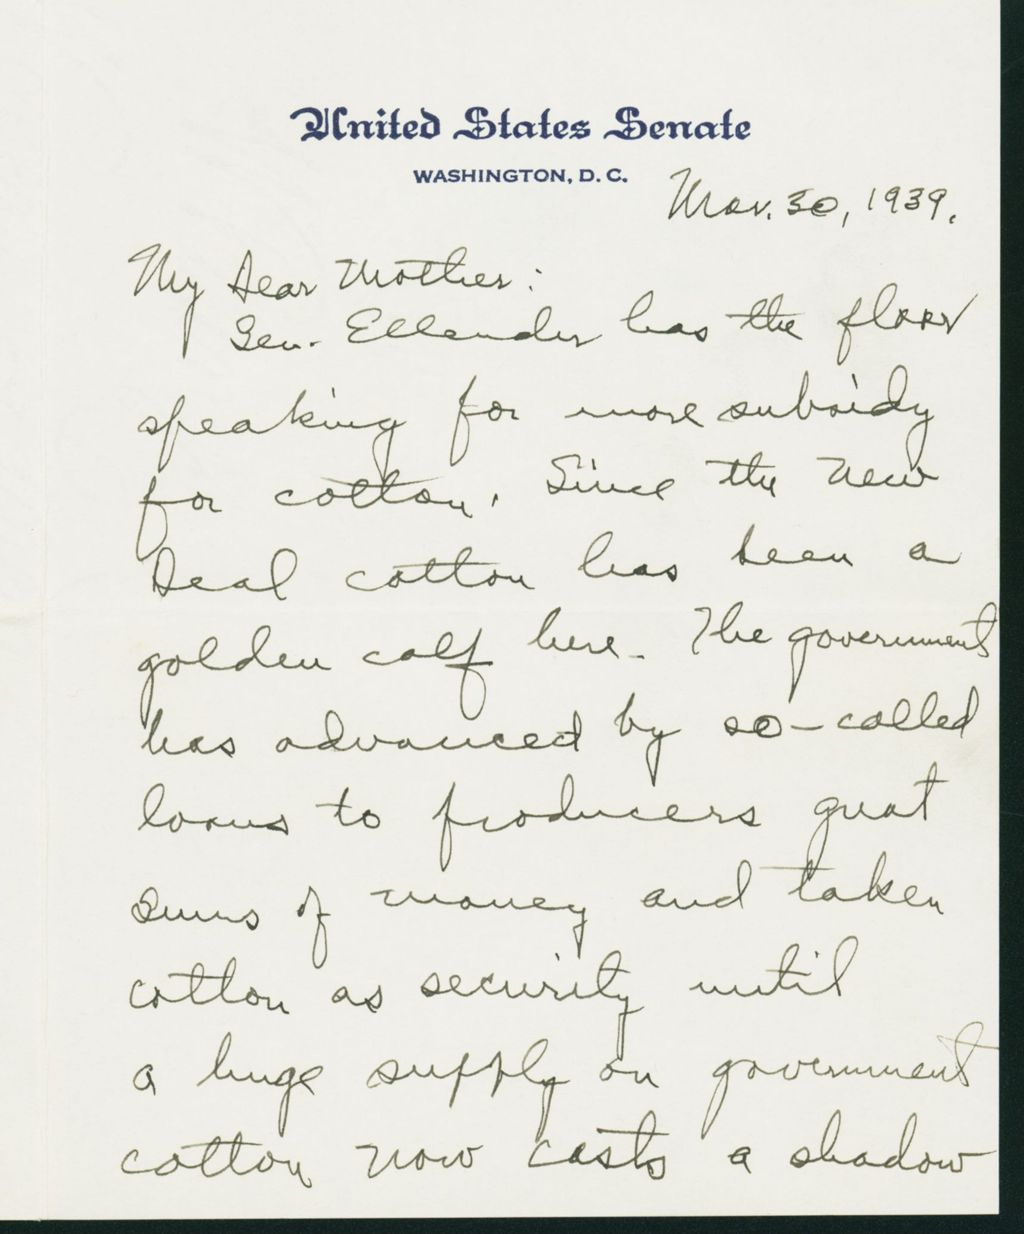 United States Senate
WASHINGTON, D. C.
Mar. 30, 1939.
My Dear Mother:
Sen. Ellender has the floor
speaking for more subsidy
for cotton. Since the New
Deal cotton has been a
golden calf here. The government
has advanced by so-called
loans to producers great
sums of money and taken
cotton as security until
a huge supply on government
cotton now casts a shadow